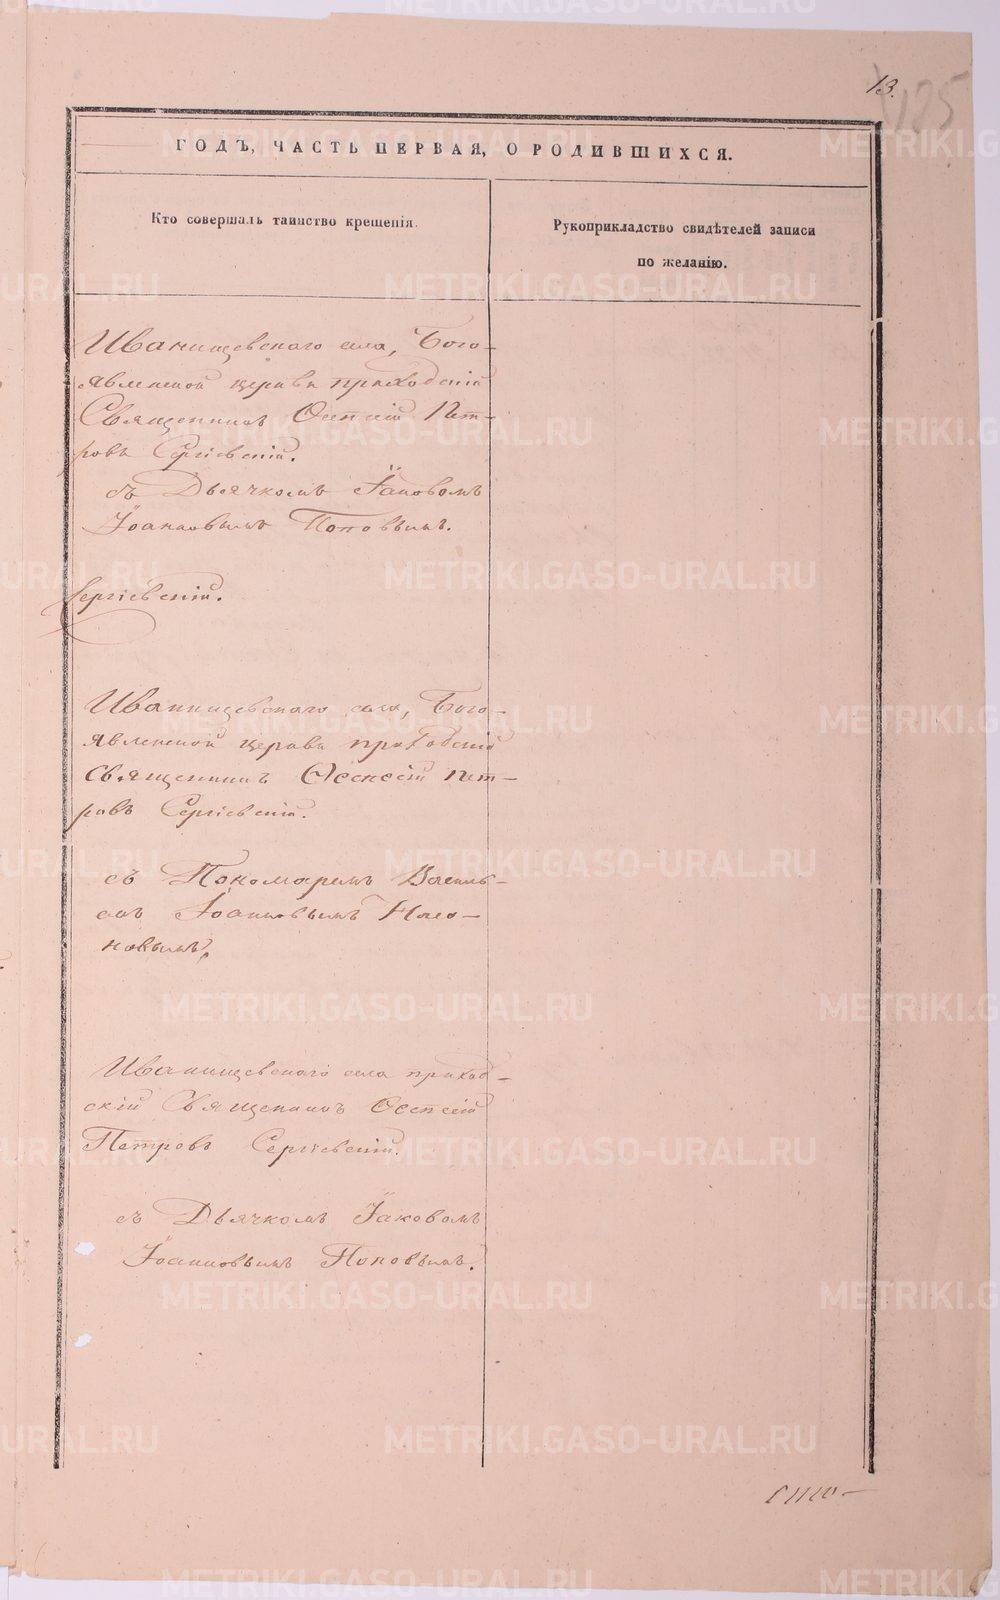 13.
125
ГОДЪ, ЧАСТЬ ПЕРВАЯ, О РОДИВШИХСЯ.
Кто совершалъ таинство крещенія.
Рукоприкладство свидѣтелей записи
по желанію.
Иванищевскаго села, Бого-
явленской церкви приходскій
Священникъ Пет-
ровъ Сергіевскій.
съ Дьячкомъ Іаковомъ
Іоанновымъ Поповымъ.
Сергіевскій.
Иванищевскаго села, Бого-
явленской церкви приходскій
священникъ Пет-
ровъ Сергіевскій.
съ Пономаремъ Василь-
емъ Іоанновымъ
новымъ.
Иванищевскаго села приход-
скій Священникъ
Петровъ Сергіевскій.
съ Дьячкомъ Іаковомъ
Іоанновымъ Поповымъ.
METRIKI.GASO-URAL.RU